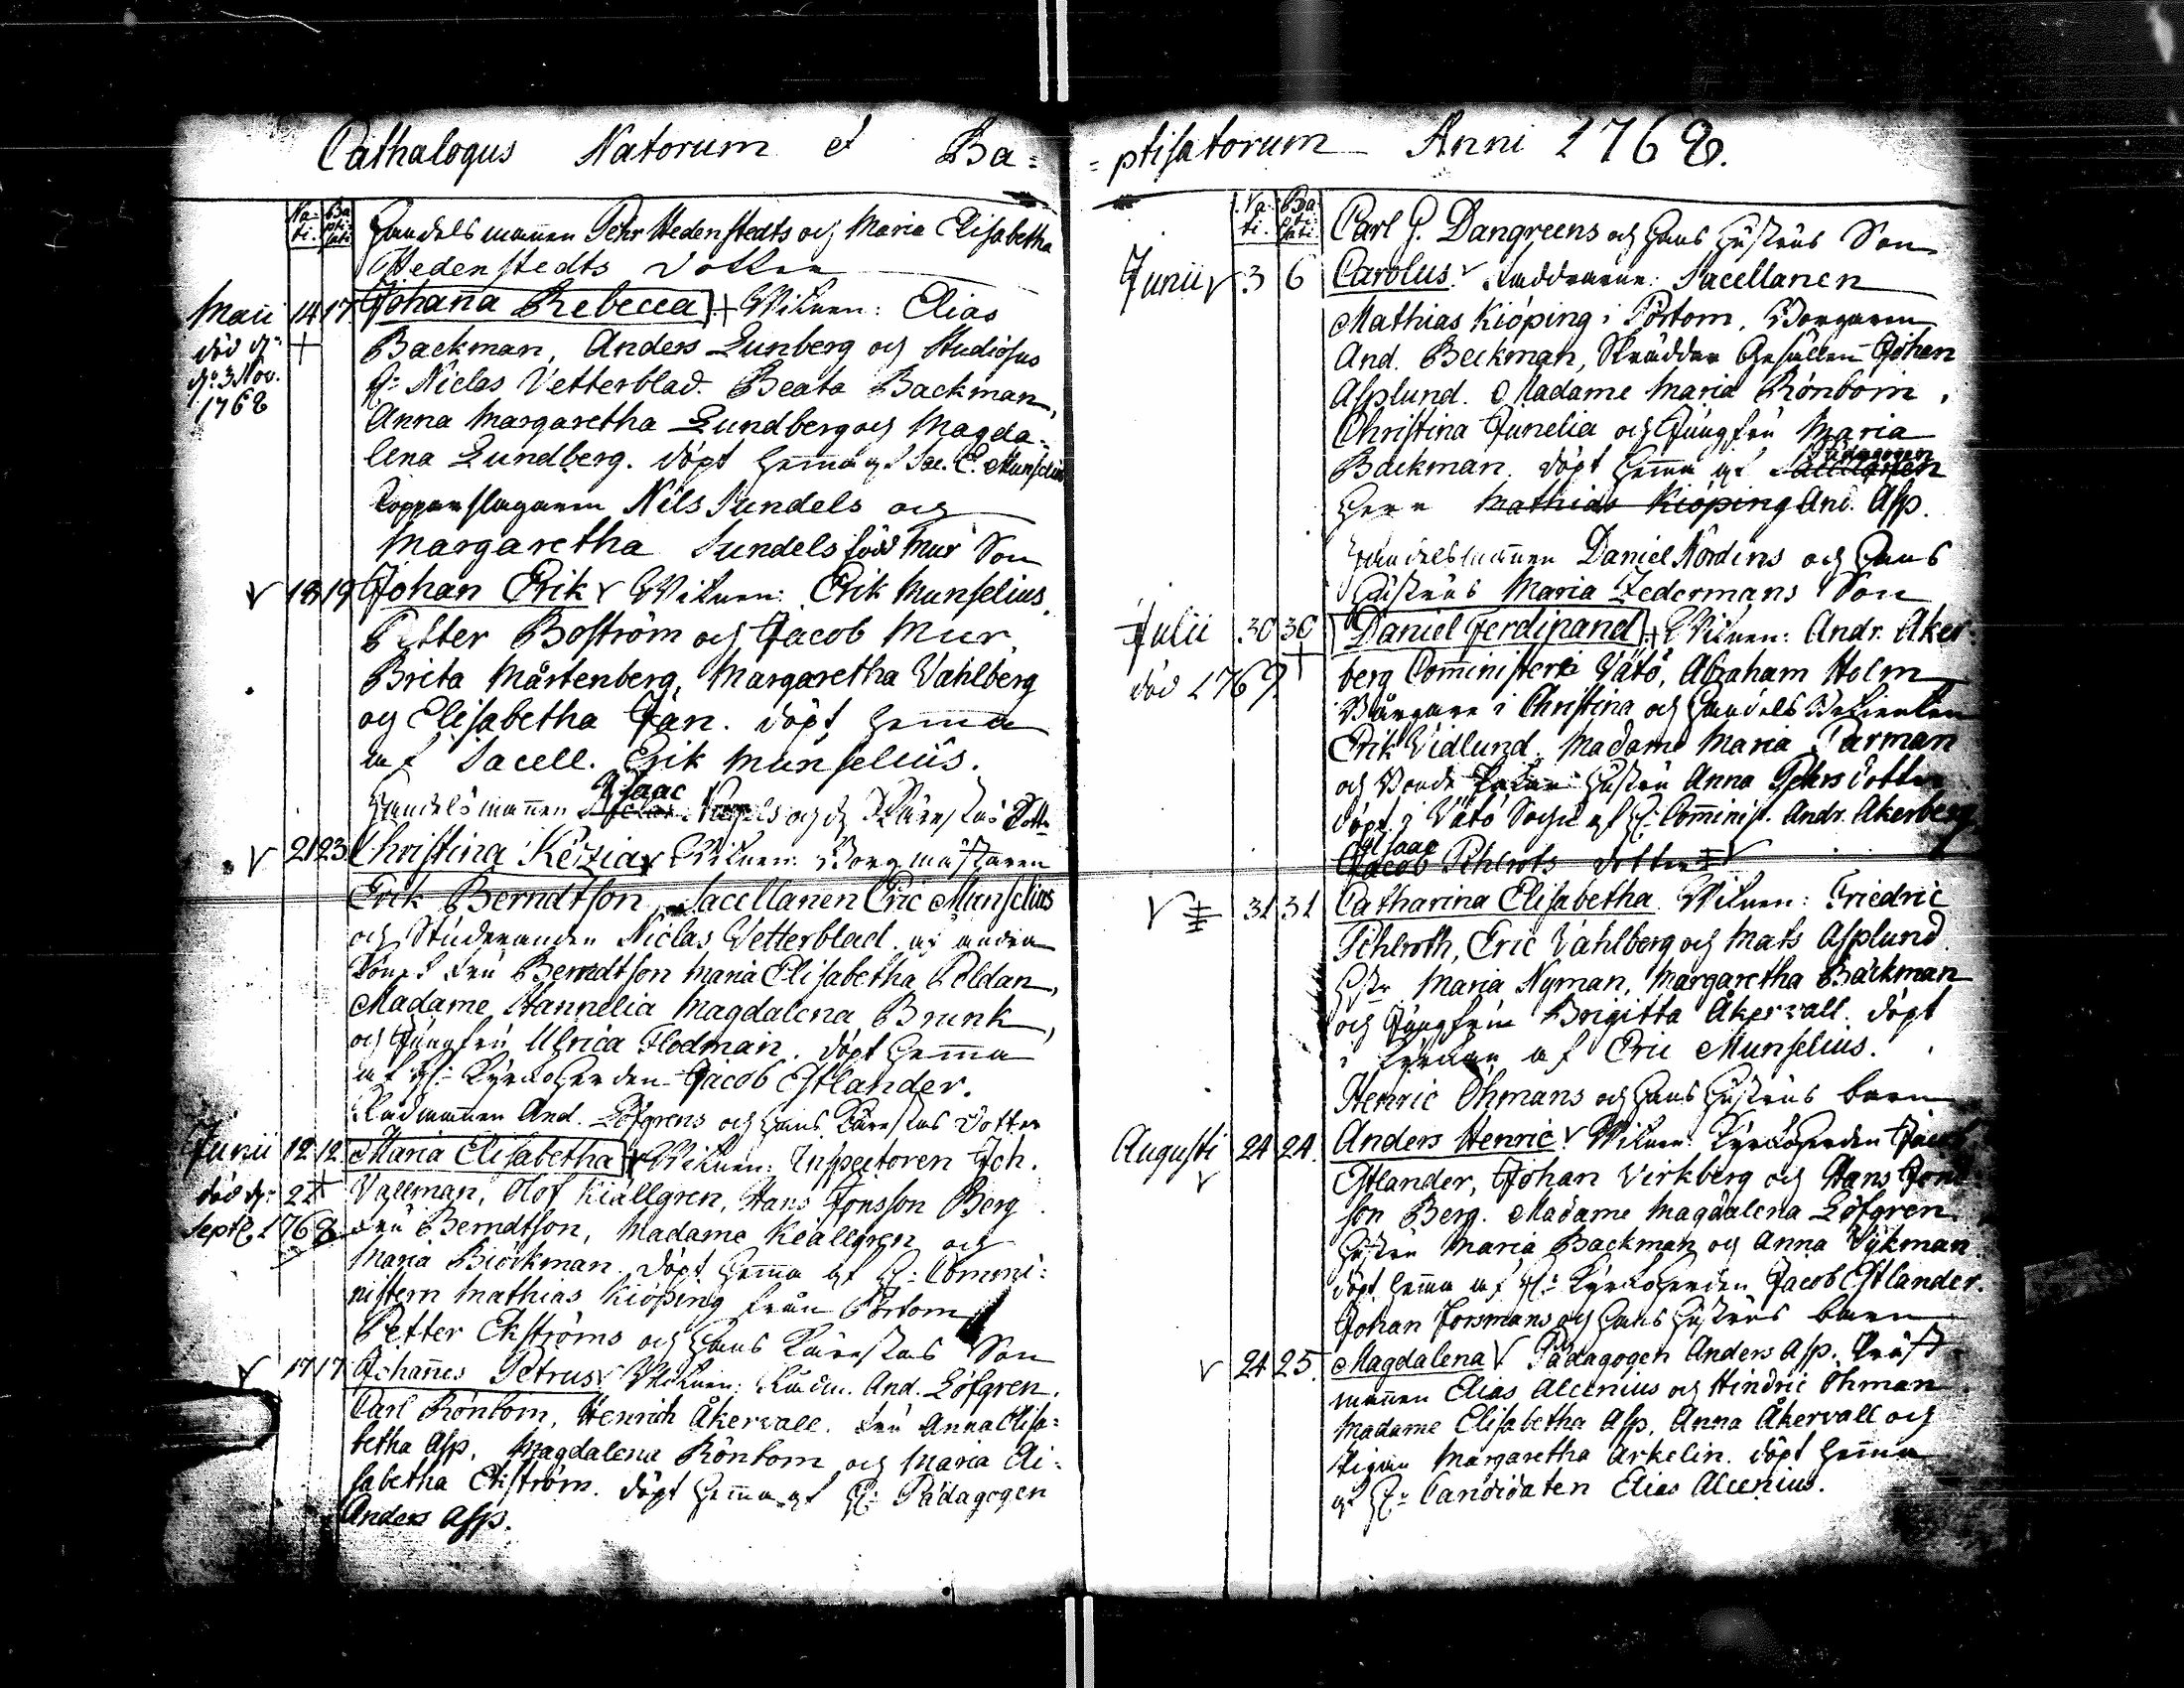 Cathalogus Natorum et Ba=
Na=
ti.
Ba
pti=
sati
Handelsmannen Pehr Hedenstedts och Maria Elisabetha
Hedenstedts dotter
Maii 14 17 Johanna Rebecca + Witnen: Elias
död d:
d: 3 Nov.
1768
Backman, Anders Lunberg och Studiosus
H: Niclas Vetterblad. Beata Backman,
Anna Margaretha Lundberg och Magda=
lena Lundberg. döpt hemma af Sac. E. Munselius
Kopparslagaren Nils Sundels och
Margaretha Sundels född Mur Son
18 19 Johan Erik Witnen: Erik Munselius,
Petter Boström och Jacob Mur,
Brita Mårtenberg, Margaretha Vahlberg
och Elisabetha Jan. döpt hemma
af Sacell. Erik Munselius.
Isaac
Handelsmannen och d: Kärestas dotter
21 23 Christina Kezia Witnen: Borgmästaren
Erik Berndtson, Sacellanen Eric Munselius
och Studeranden Niclas Vetterblad. af andra
Könet Fru Berndtson Maria Elisabetha Poldan,
Madame Hannelia Magdalena Brunk,
och Jungfru Ulrica Flodman. döpt hemma
af H: Kyrkoherden Jacob Estlander.
Rådmannen And. Löfgrens och hans Kärestas dotter
Junii 12 12 Maria Elisabetha + Witnen: Inspectoren Joh.
död d: 22
Septb. 1768
Vallman, Olof Kiällgren, Hans Jonsson Berg.
Fru Berndtson, Madame Keällgren och
Maria Biörkman. döpt hemma af H: Commi=
nistern Mathias Kiöping från Pörtom
Petter Ekströms och hans Kärestas Son
17 17 Johannes Petrus Witnen: Rådm. And. Löfgren.
Carl Rönbom, Henrich Åkervall. Fru Anna Elisa=
betha Asp, Magdalena Rönbom och Maria Eli=
sabetha Ekström. döpt hemma af H: Pädagogen
Anders Asp.
=ptisatorum Anni 1768.
Na=
ti.
Ba
pti=
sati
Carl G. Dangreens och hans hustrus Son
Junii 3 6 Carolus Faddrarne: Sacellanen
Mathias Kiöping i Pörtom, Borgaren
And. Beckman, Skräddar Gesällen Johan
Asplund. Madame Maria Rönbom,
Christina Junelia och Jungfru Maria
Backman. döpt hemma af Sacellanen
Pädagogen
Herr Mathias Kiöping And. Asp.
Handelsmannen Daniel Nordins och hans
hustrus Maria Zedermans Son
Julii 30 30 Daniel Ferdinand + Witnen: Andr. Aker=
död 1769.
berg Comminister i Vätö, Abraham Holm
Borgare i Christina och Handels Betienten
Erik Vidlund. Madame Maria
och Bonde hustru Anna Pehrs dotter
döpt i Vätö Sochn af H: Comminist. Andr. Akerberg.
Isaac
Jacob Pehlrots dotter
31 31 Catharina Elisabetha. Witnen: Friedric
Pehlroth, Eric Vahlberg och Mats Asplund.
Hstr Maria Nyman, Margaretha Backman
och Jungfrun Brigitta Åkervall. döpt
i Kyrkan af Eric Munselius.
Henric Öhmans och hans hustrus barn
Augusti 24 24. Anders Henric Witnen: Kyrkoherden Jacob
Estlander, Johan Virkberg och Hans Jons
son Berg. Madame Magdalena Löfgren.
Hustru Maria Backman och Anna Vykman.
döpt hemma af H: Kyrkoherden Jacob Estlander.
Johan Forsmans och hans hustrus barn
24 25. Magdalena Pädagogen Anders Asp. Präst
mannen Elias Alcenius och Hindric Öhman.
Madame Elisabetha Asp, Anna Åkervall och
Pigan Margaretha Arkelin. döpt hemma
af H: Candidaten Elias Alcenius.